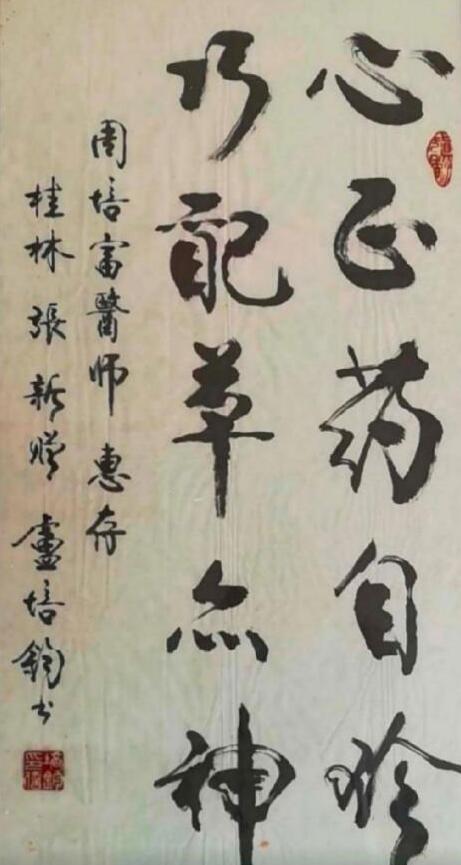 心正药自
巧配草亦神
周培富醫师 惠存
桂林 張新赠 盧培钧书